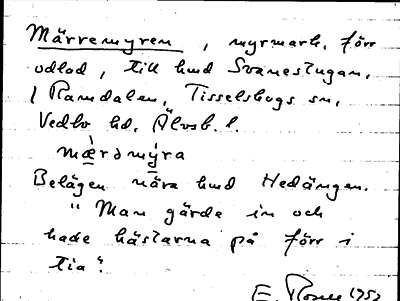 Märremyren, myrmark, förr
odlad, till hmd Svanestugan,
/ Ramdalen, Tisselskogs sn,
Vedbo hd, Älvsb. l.
mæ̀rəmy̰ra
Belägen nära hmd Hedängen.
"Man gärde in och
hade hästarna på förr i
tia".
E. Rosell 1952